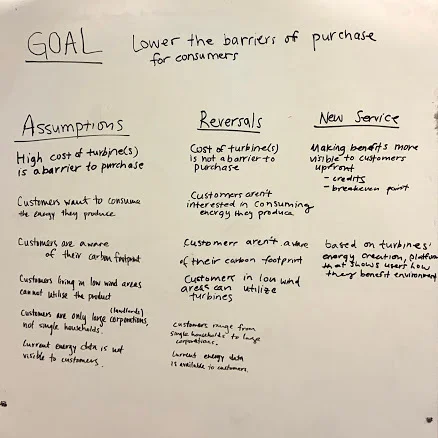 GOAL
Lower the barriers of purchase
for consumers
Assumptions
High cost of turbine(s)
is a barrier to purchase
Customers want to consume
the energy they produce
Customers are aware
of their carbon footprint
Customers living in low wind areas
cannot utilise the product
(landlords)
Customers are only large corporations,
not single households.
Current energy data is not
visible to customers.
Reversals
Cost of turbine(s)
is not a barrier to
purchase
Customers aren't
interested in consuming
energy they produce
Customers aren't aware
of their carbon footprint
Customers in low wind
areas can utilize
turbines
customers range from
single households to large
corporations.
Current energy data
is available to customers.
New Service
Making benefits more
visible to customers
upfront
- credits
- breakeven point
based on turbines'
energy creation, platform
that shows users how
they benefit environment